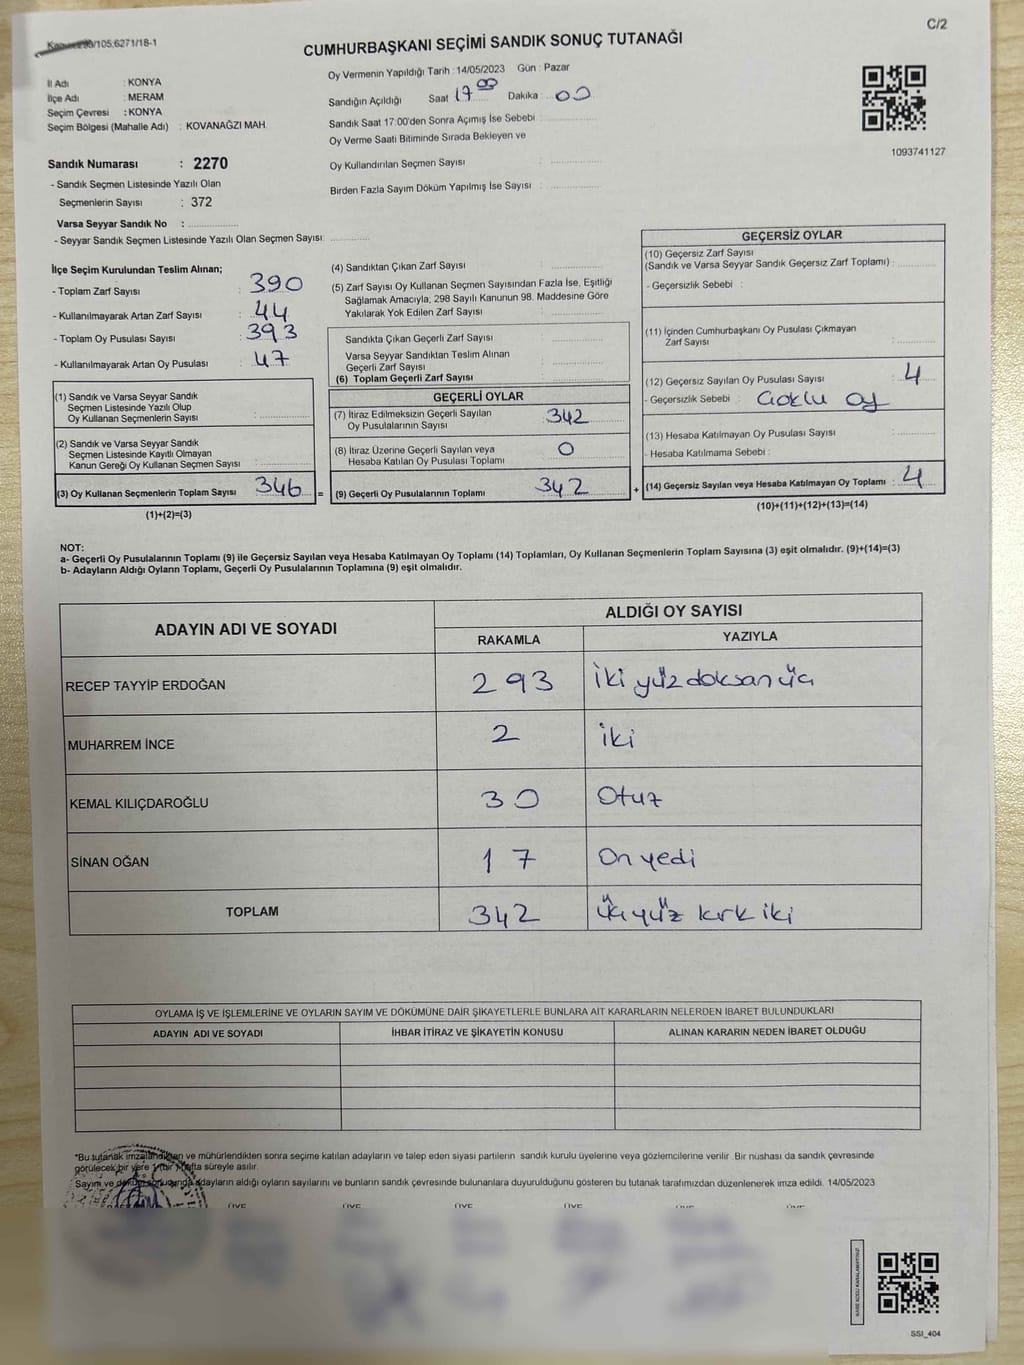 C/2
105;6271/18-1
CUMHURBAŞKANI SEÇİMİ SANDIK SONUÇ TUTANAĞI
İl Adı : KONYA
İlçe Adı : MERAM
Seçim Çevresi : KONYA
Seçim Bölgesi (Mahalle Adı) : KOVANAĞZI MAH.
Sandık Numarası : 2270
- Sandık Seçmen Listesinde Yazılı Olan
Seçmenlerin Sayısı : 372
Varsa Seyyar Sandık No :
- Seyyar Sandık Seçmen Listesinde Yazılı Olan Seçmen Sayısı:
Oy Vermenin Yapıldığı Tarih : 14/05/2023 Gün : Pazar
Sandığın Açıldığı Saat 17 00 Dakika : 00
Sandık Saat 17:00'den Sonra Açımış İse Sebebi :
Oy Verme Saati Bitiminde Sırada Bekleyen ve
Oy Kullandırılan Seçmen Sayısı :
Birden Fazla Sayım Döküm Yapılmış İse Sayısı :
1093741127
İlçe Seçim Kurulundan Teslim Alınan;
- Toplam Zarf Sayısı : 390
- Kullanılmayarak Artan Zarf Sayısı : 44
- Toplam Oy Pusulası Sayısı : 393
- Kullanılmayarak Artan Oy Pusulası : 47
(1) Sandık ve Varsa Seyyar Sandık
Seçmen Listesinde Yazılı Olup
Oy Kullanan Seçmenlerin Sayısı :
(2) Sandık ve Varsa Seyyar Sandık
Seçmen Listesinde Kayıtlı Olmayan
Kanun Gereği Oy Kullanan Seçmen Sayısı :
(3) Oy Kullanan Seçmenlerin Toplam Sayısı : 346 =
(1)+(2)=(3)
(4) Sandıktan Çıkan Zarf Sayısı :
(5) Zarf Sayısı Oy Kullanan Seçmen Sayısından Fazla İse, Eşitliği
Sağlamak Amacıyla; 298 Sayılı Kanunun 98. Maddesine Göre
Yakılarak Yok Edilen Zarf Sayısı :
Sandıkta Çıkan Geçerli Zarf Sayısı :
Varsa Seyyar Sandıktan Teslim Alınan
Geçerli Zarf Sayısı :
(6) Toplam Geçerli Zarf Sayısı :
GEÇERLİ OYLAR
(7) İtiraz Edilmeksizin Geçerli Sayılan
Oy Pusulalarının Sayısı : 342
(8) İtiraz Üzerine Geçerli Sayılan veya
Hesaba Katılan Oy Pusulası Toplamı : 0
(9) Geçerli Oy Pusulalarının Toplamı : 342 +
GEÇERSİZ OYLAR
(10) Geçersiz Zarf Sayısı
(Sandık ve Varsa Seyyar Sandık Geçersiz Zarf Toplamı) :
- Geçersizlik Sebebi :
(11) İçinden Cumhurbaşkanı Oy Pusulası Çıkmayan
Zarf Sayısı :
(12) Geçersiz Sayılan Oy Pusulası Sayısı : 4
- Geçersizlik Sebebi : Çoklu oy
(13) Hesaba Katılmayan Oy Pusulası Sayısı :
- Hesaba Katılmama Sebebi :
(14) Geçersiz Sayılan veya Hesaba Katılmayan Oy Toplamı : 4
(10)+(11)+(12)+(13)=(14)
NOT:
a- Geçerli Oy Pusulalarının Toplamı (9) ile Geçersiz Sayılan veya Hesaba Katılmayan Oy Toplamı (14) Toplamları, Oy Kullanan Seçmenlerin Toplam Sayısına (3) eşit olmalıdır. (9)+(14)=(3)
b- Adayların Aldığı Oyların Toplamı, Geçerli Oy Pusulalarının Toplamına (9) eşit olmalıdır.
ADAYIN ADI VE SOYADI ALDIĞI OY SAYISI
RAKAMLA YAZIYLA
RECEP TAYYİP ERDOĞAN 293 İki yüz doksan üç
MUHARREM İNCE 2 İki
KEMAL KILIÇDAROĞLU 30 Otuz
SİNAN OĞAN 17 On yedi
TOPLAM 342 Üç yüz kırk iki
OYLAMA İŞ VE İŞLEMLERİNE VE OYLARIN SAYIM VE DÖKÜMÜNE DAİR ŞİKAYETLERLE BUNLARA AİT KARARLARIN NELERDEN İBARET BULUNDUKLARI
ADAYIN ADI VE SOYADI İHBAR İTİRAZ VE ŞİKAYETİN KONUSU ALINAN KARARIN NEDEN İBARET OLDUĞU
*Bu tutanak imzalandıktan ve mühürlendikten sonra seçime katılan adayların ve talep eden siyasi partilerin sandık kurulu üyelerine veya gözlemcilerine verilir .Bir nüshası da sandık çevresinde
görülecek bir yere 1 (bir ) hafta süreyle asılır.
Sayım ve döküm sonucunda adayların aldığı oyların sayılarını ve bunların sandık çevresinde bulunanlara duyurulduğunu gösteren bu tutanak tarafımızdan düzenlenerek imza edildi. 14/05/2023
ÜYE ÜYE ÜYE ÜYE ÜYE ÜYE
SSI_404